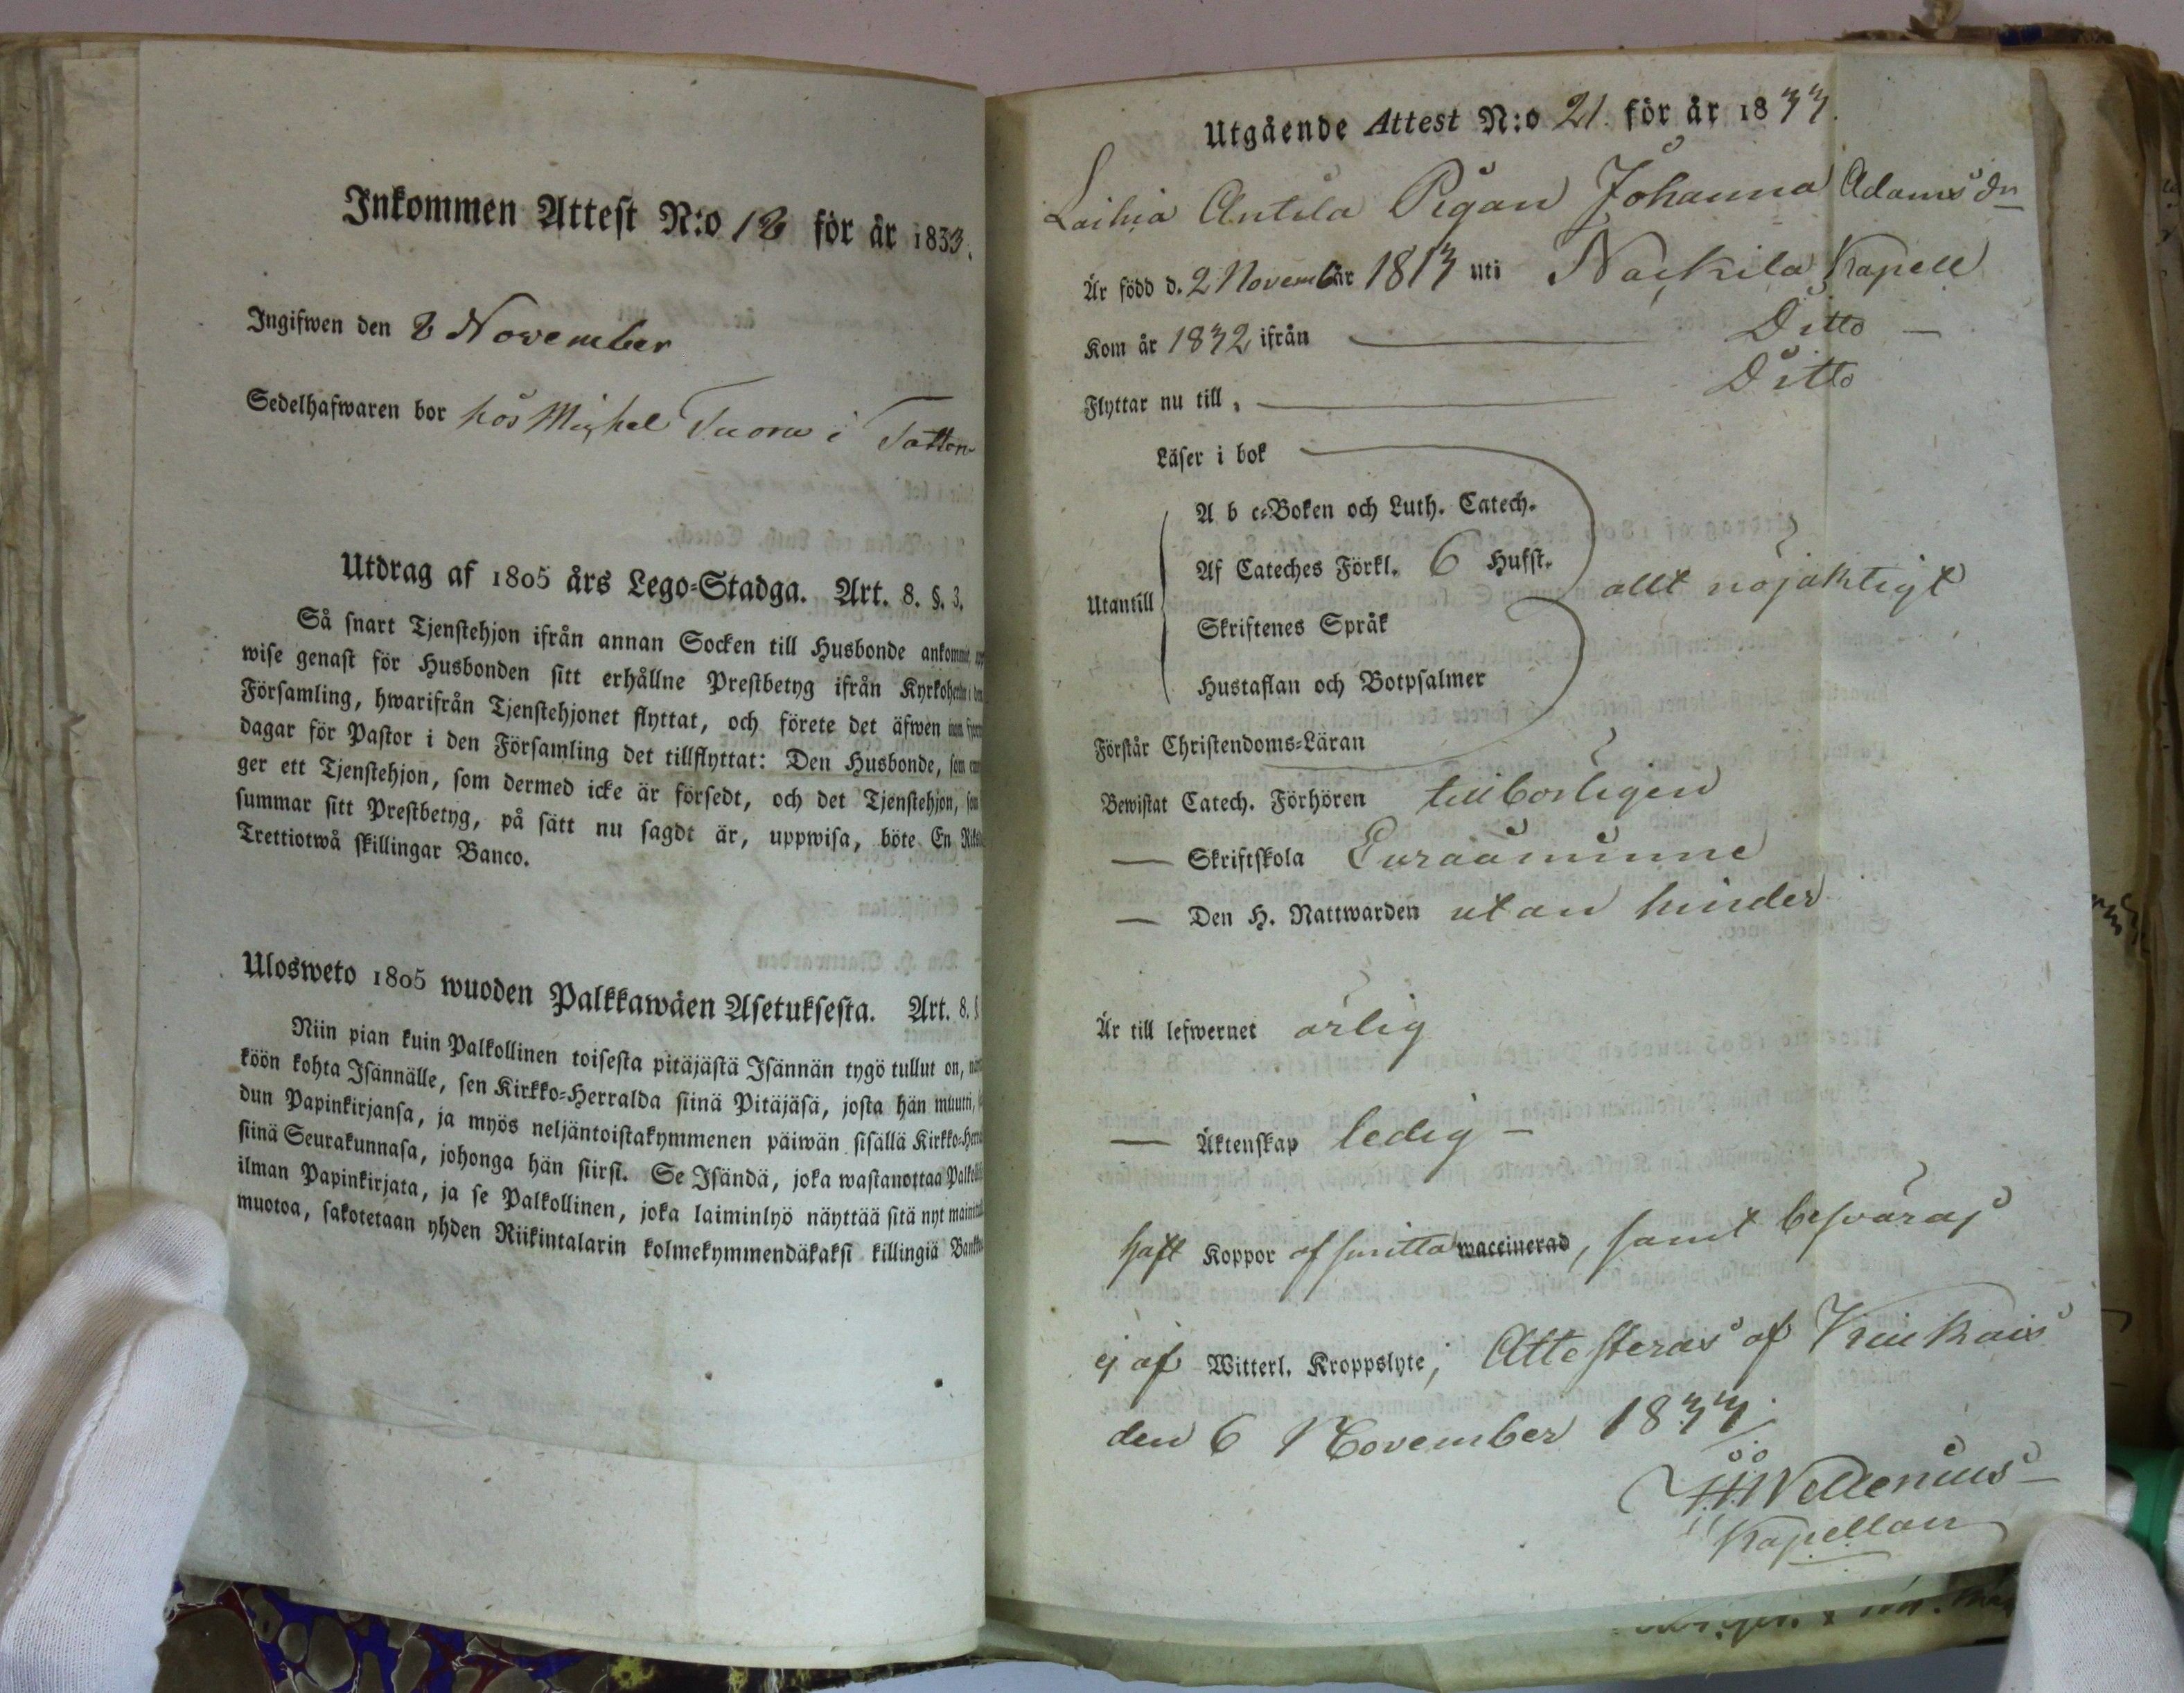 Inkommen Attest N:o 18 för år 1833.
Ingifwen den 8 November
Sedelhafwaren bor hos Michel Tuom i Tatten
Utdrag af 1805 års Lego-Stadga. Art. 8. §. 3.
Så snart Tjenstehjon ifrån annan Socken till Husbonde ankommit,
wise genast för Husbonden sitt erhållne Prestbetyg ifrån Kyrkoherden i den
Församling, hwarifrån Tjenstehjonet flyttat, och förete det äfwen inom fjorton
dagar för Pastor i den Församling det tillflyttat: Den Husbonde, som
ger ett Tjenstehjon, som dermed icke är försedt, och det Tjenstehjon, som
summar sitt Prestbetyg, på sätt nu sagdt är, uppwisa, böte En Riksd
Trettiotwå skillingar Banco.
Ulosweto 1805 wuoden Palkkawäen Asetuksesta. Art. 8. §
Niin pian kuin Palkollinen toisesta pitäjästä Isännän tygö tullut on,
köön kohta Isännälle, sen Kirkko-Herralda siinä Pitäjäsä, josta hän muutti,
dun Papinkirjansa, ja myös neljäntoistakymmenen päiwän sisällä Kirkko-Herra
siinä Seurakunnasa, johonga hän siirsi. Se Isändä, joka wastanottaa Palkolli
ilman Papinkirjata, ja se Palkollinen, joka laiminlyö näyttää sitä nyt mainittu
muotoa, sakotetaan yhden Riikintalarin kolmekymmendäkaksi killingiä Banko
Utgående Attest N:o 21. för år 1833.
Laihia Antila Pigan Johanna Adamsdr
Är född d. 2 Novemb år 1813 uti Nackila Kapell
Kom år 1832 ifrån Ditto
Flyttar nu till, Ditto
Läser i bok
A b c-Boken och Luth. Catech.
Af Cateches Förkl. 6 Hufst.
Utantill allt nöjaktigt
Skriftenes Språk
Hustaflan och Botpsalmer
Förstår Christendoms-Läran
Bewistat Catech. Förhören tillbörligen
— Skriftskola Euraåminne
— Den H. Nattwarden utan hinder
Är till lefwernet ärlig
— Äktenskap ledig —
haft Koppor af smitta waccinerad, samt besväras
ej af Witterl. Kroppslyte; Attesteras af Kiukais
den 6 November 1833.
Wellenius
Kapellan